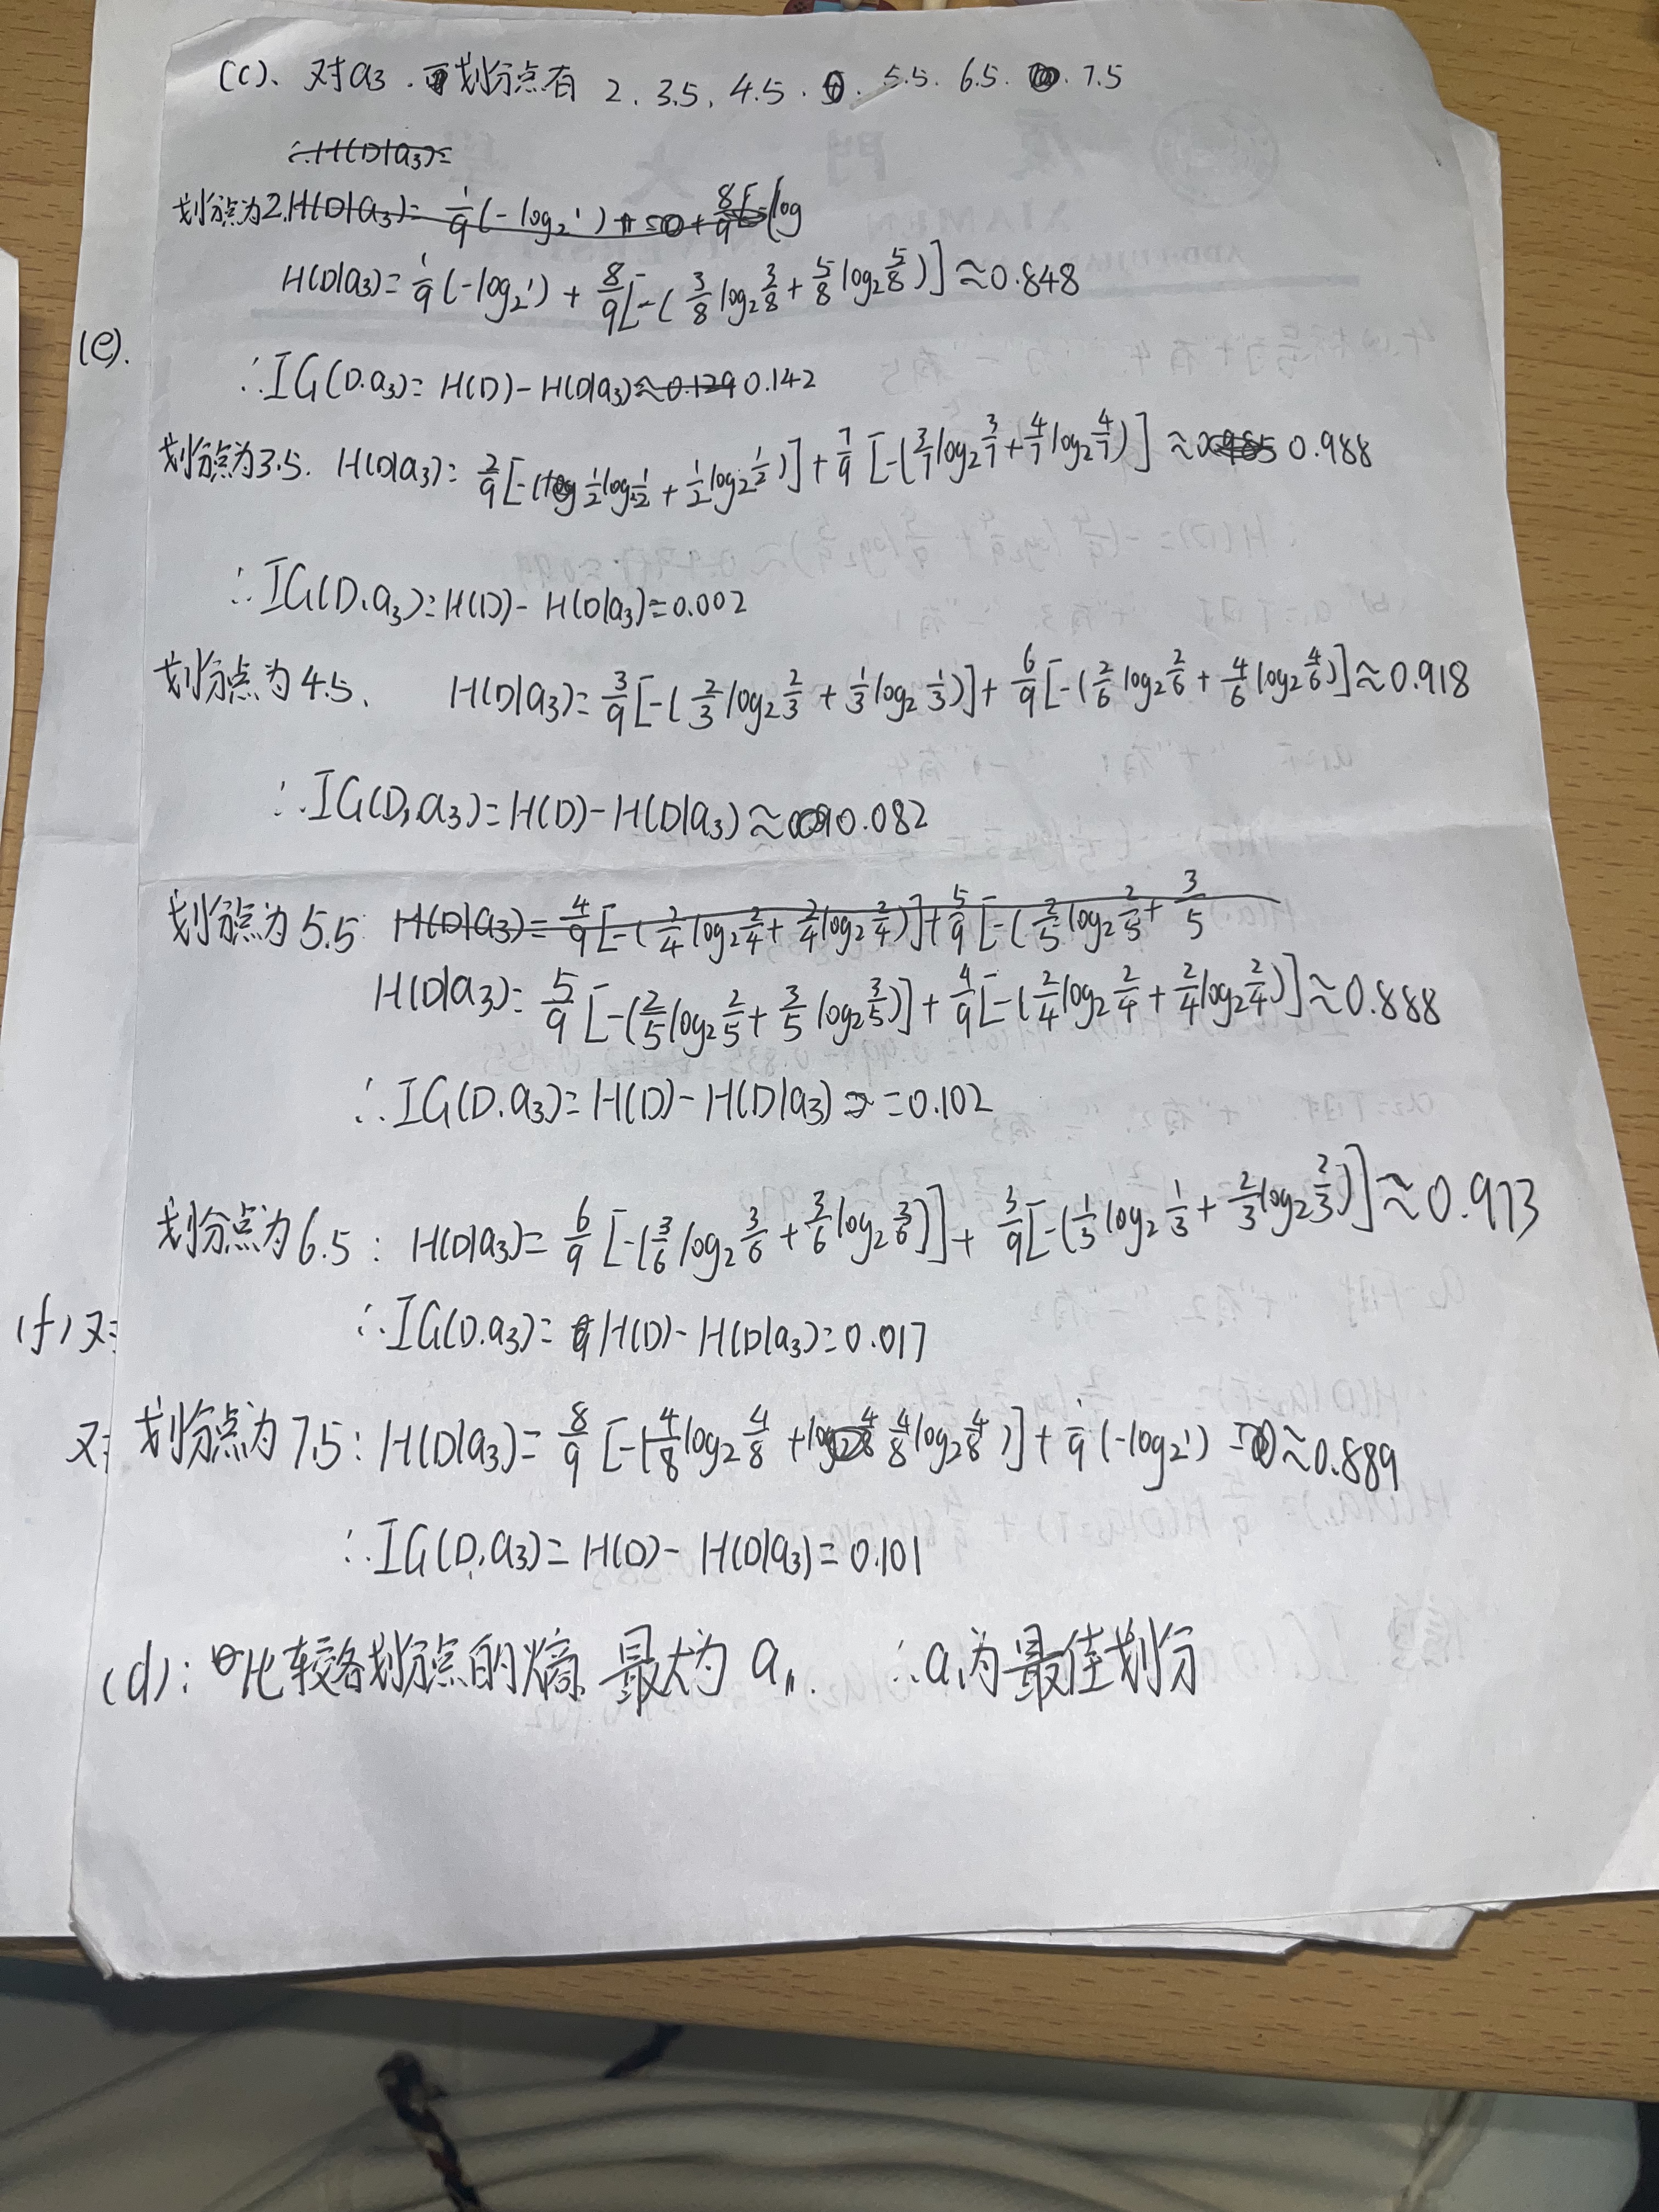 (c)、对a₃.可划分点有 2、3.5、4.5、5.5、6.5、7.5
∴H(D|a₃)=
划分点为2.H(D|a₃)= 1/9(-log₂1) + 0 + 8/9[-(log
H(D|a₃)= 1/9(-log₂1) + 8/9[-(3/8log₂3/8 + 5/8log₂5/8)] ≈0.848
(e).
∴IG(D.a₃)= H(D)-H(D|a₃)≈0.129 0.142
划分点为3.5. H(D|a₃)= 2/9[-(1/2log₂1/2 + 1/2log₂1/2)] + 7/9[-(3/7log₂3/7+4/7log₂4/7)] ≈ 0.988
∴IG(D.a₃)=H(D)-H(D|a₃)=0.002
划分点为4.5、 H(D|a₃)= 3/9[-(2/3log₂2/3 + 1/3log₂1/3)]+ 6/9[-(2/6log₂2/6 + 4/6log₂4/6)]≈0.918
∴IG(D,a₃)=H(D)-H(D|a₃)≈0.082
划分点为5.5 H(D|a₃)= 4/9[-(2/4log₂2/4+ 2/4log₂2/4)]+5/9[-(2/5log₂2/5+ 3/5
H(D|a₃)= 5/9[-(2/5log₂2/5+ 3/5log₂3/5)]+4/9[-(2/4log₂2/4 + 2/4log₂2/4)]≈0.888
∴IG(D.a₃)= H(D)-H(D|a₃) =0.102
划分点为6.5: H(D|a₃)= 6/9[-(3/6log₂3/6 +3/6log₂3/6)]+ 3/9[-(1/3log₂1/3 + 2/3log₂2/3)]≈0.973
(f)又=
∴IG(D.a₃)= H(D)-H(D|a₃)=0.017
又=
划分点为7.5: H(D|a₃)= 8/9[-(4/8log₂4/8 + 4/8log₂4/8)]+ 1/9(-log₂1) ≈0.889
∴IG(D,a₃)= H(D)-H(D|a₃)=0.101
(d):比较各划分点的熵、最大为a₁. ∴a₁为最佳划分